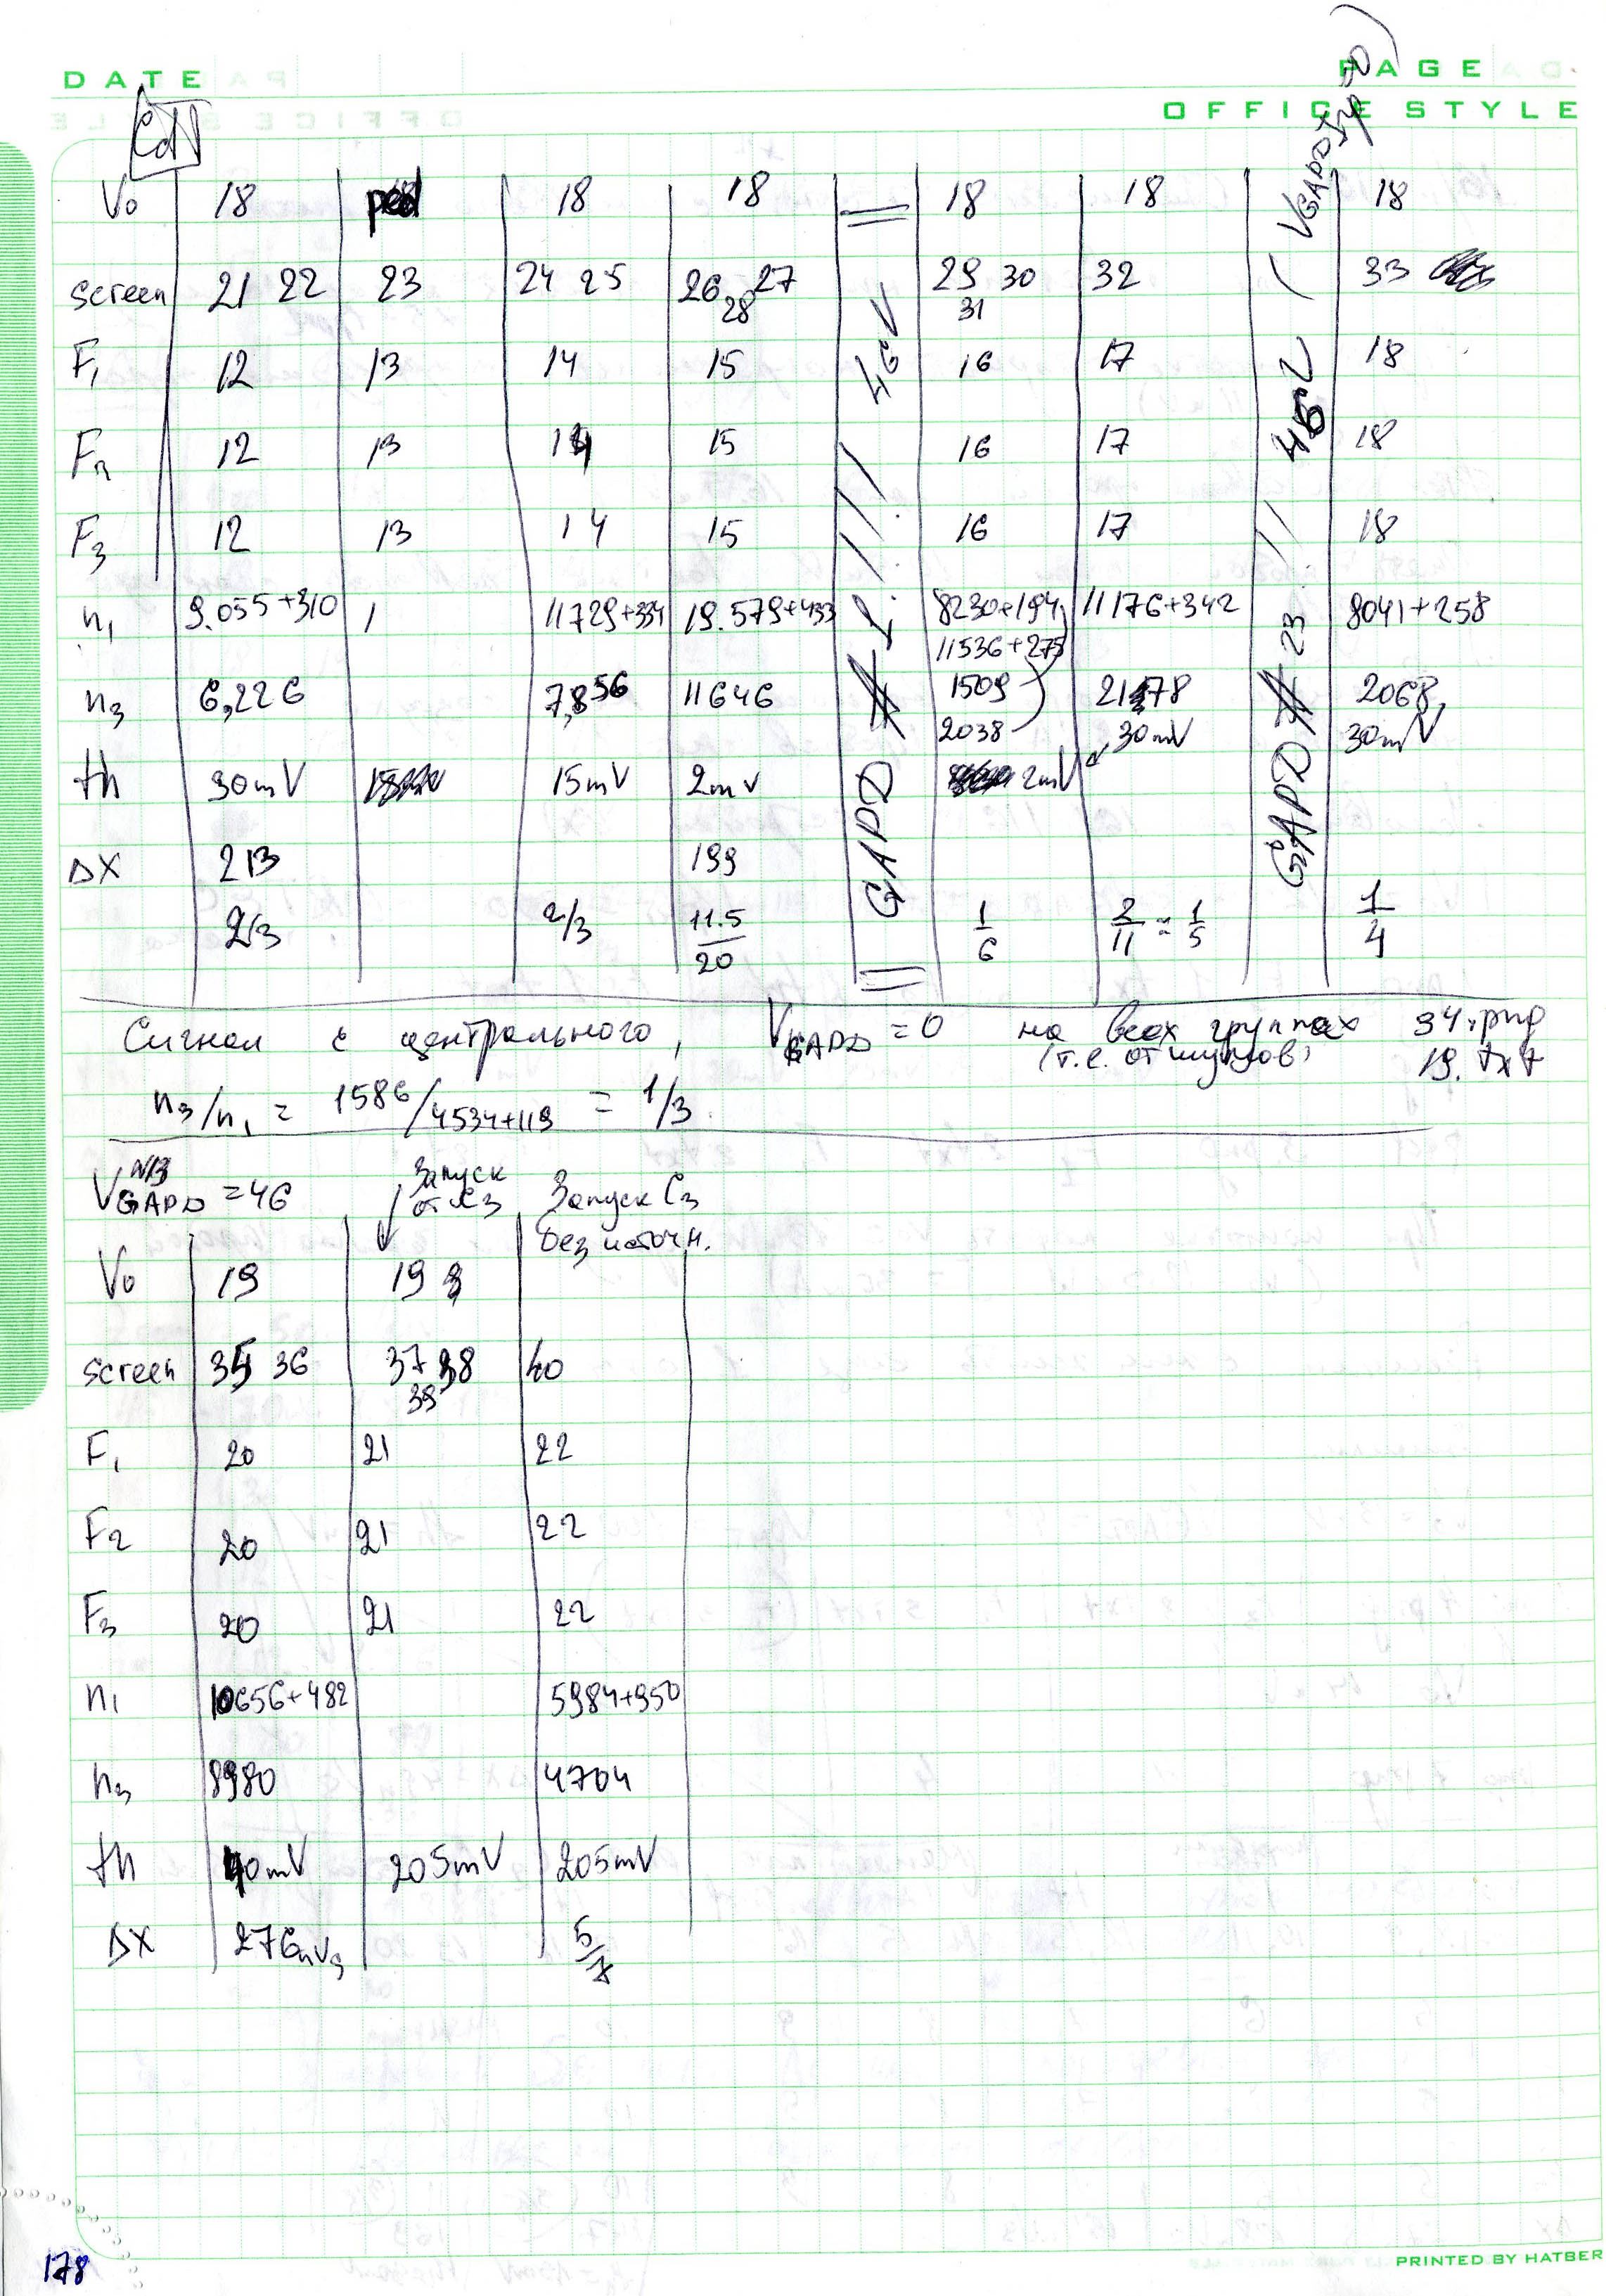 DATE
PAGE
OFFICE STYLE
V₀ 18 ped 18 18 18 18 18
screen 21 22 23 24 25 26 27 28 29 30 31 32 33
F₁ 12 13 14 15 16 17 18
F₂ 12 13 14 15 16 17 18
F₃ 12 13 14 15 16 17 18
n₁ 9.055+310 / 11729+334 19.579+433 8230+194, 11176+342 8041+258
11536+275
n₃ 6,226 7,856 11646 1509 2178 2068,
2038 30mV 30mV
th 30mV 15mV 2mV 2mV
ΔX 213 199
2/3 2/3 11.5/20 1/6 2/11 ≈ 1/5 1/4
GAPD
GAPD
Сигнал с центрального, V GAPD = 0 на всех группах 34.png
(т.е. от шумов) 19.txt
n₃/n₁ = 1586/4534+119 = 1/3
V GAPD = 46 Запуск Запуск C₃
без источн.
V₀ 19 19
screen 35 36 37 38 39 40
F₁ 20 21 22
F₂ 20 21 22
F₃ 20 21 22
n₁ 10656+482 5984+950
n₃ 8980 4704
th 40mV 205mV 205mV
ΔX 5/7
178
PRINTED BY HATBER